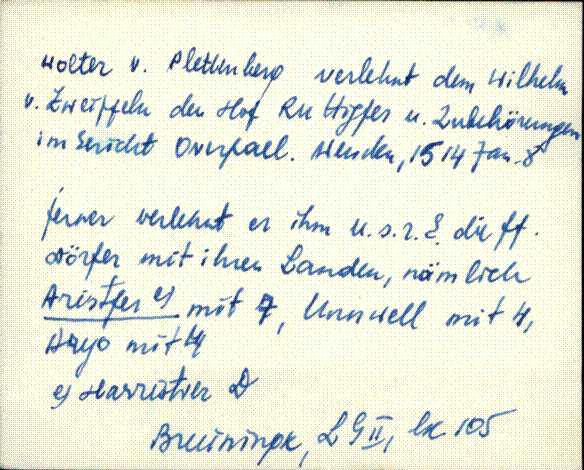 Wolter v. Plettenberg verlehnt dem Wilhelm
v. Zweiffeln den Hof Ruttigfer u. Zubehörungen
im Gericht Overpael. Wenden, 1514 Jan. 8
ferner verlehnt er ihm u. s. r. E. die ff.
Dörfer mit ihren Landen, nämlich
Aristfer e) mit 7, Ummell mit 4,
Hayo mit 4
e) Harristver D
Bruiningk, LG II, № 105